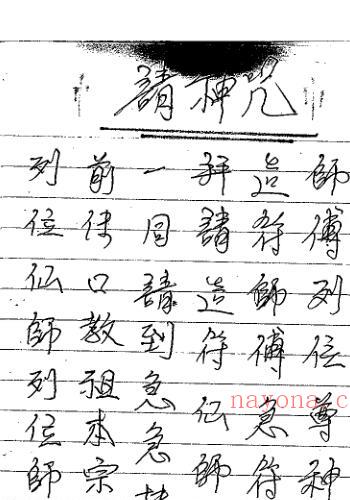 請神咒
師傅列位尊神
造符師傅急符
拜請造符仙師
一同請到急急
前传口教祖本宗
列位仙師列位師
nayona.c